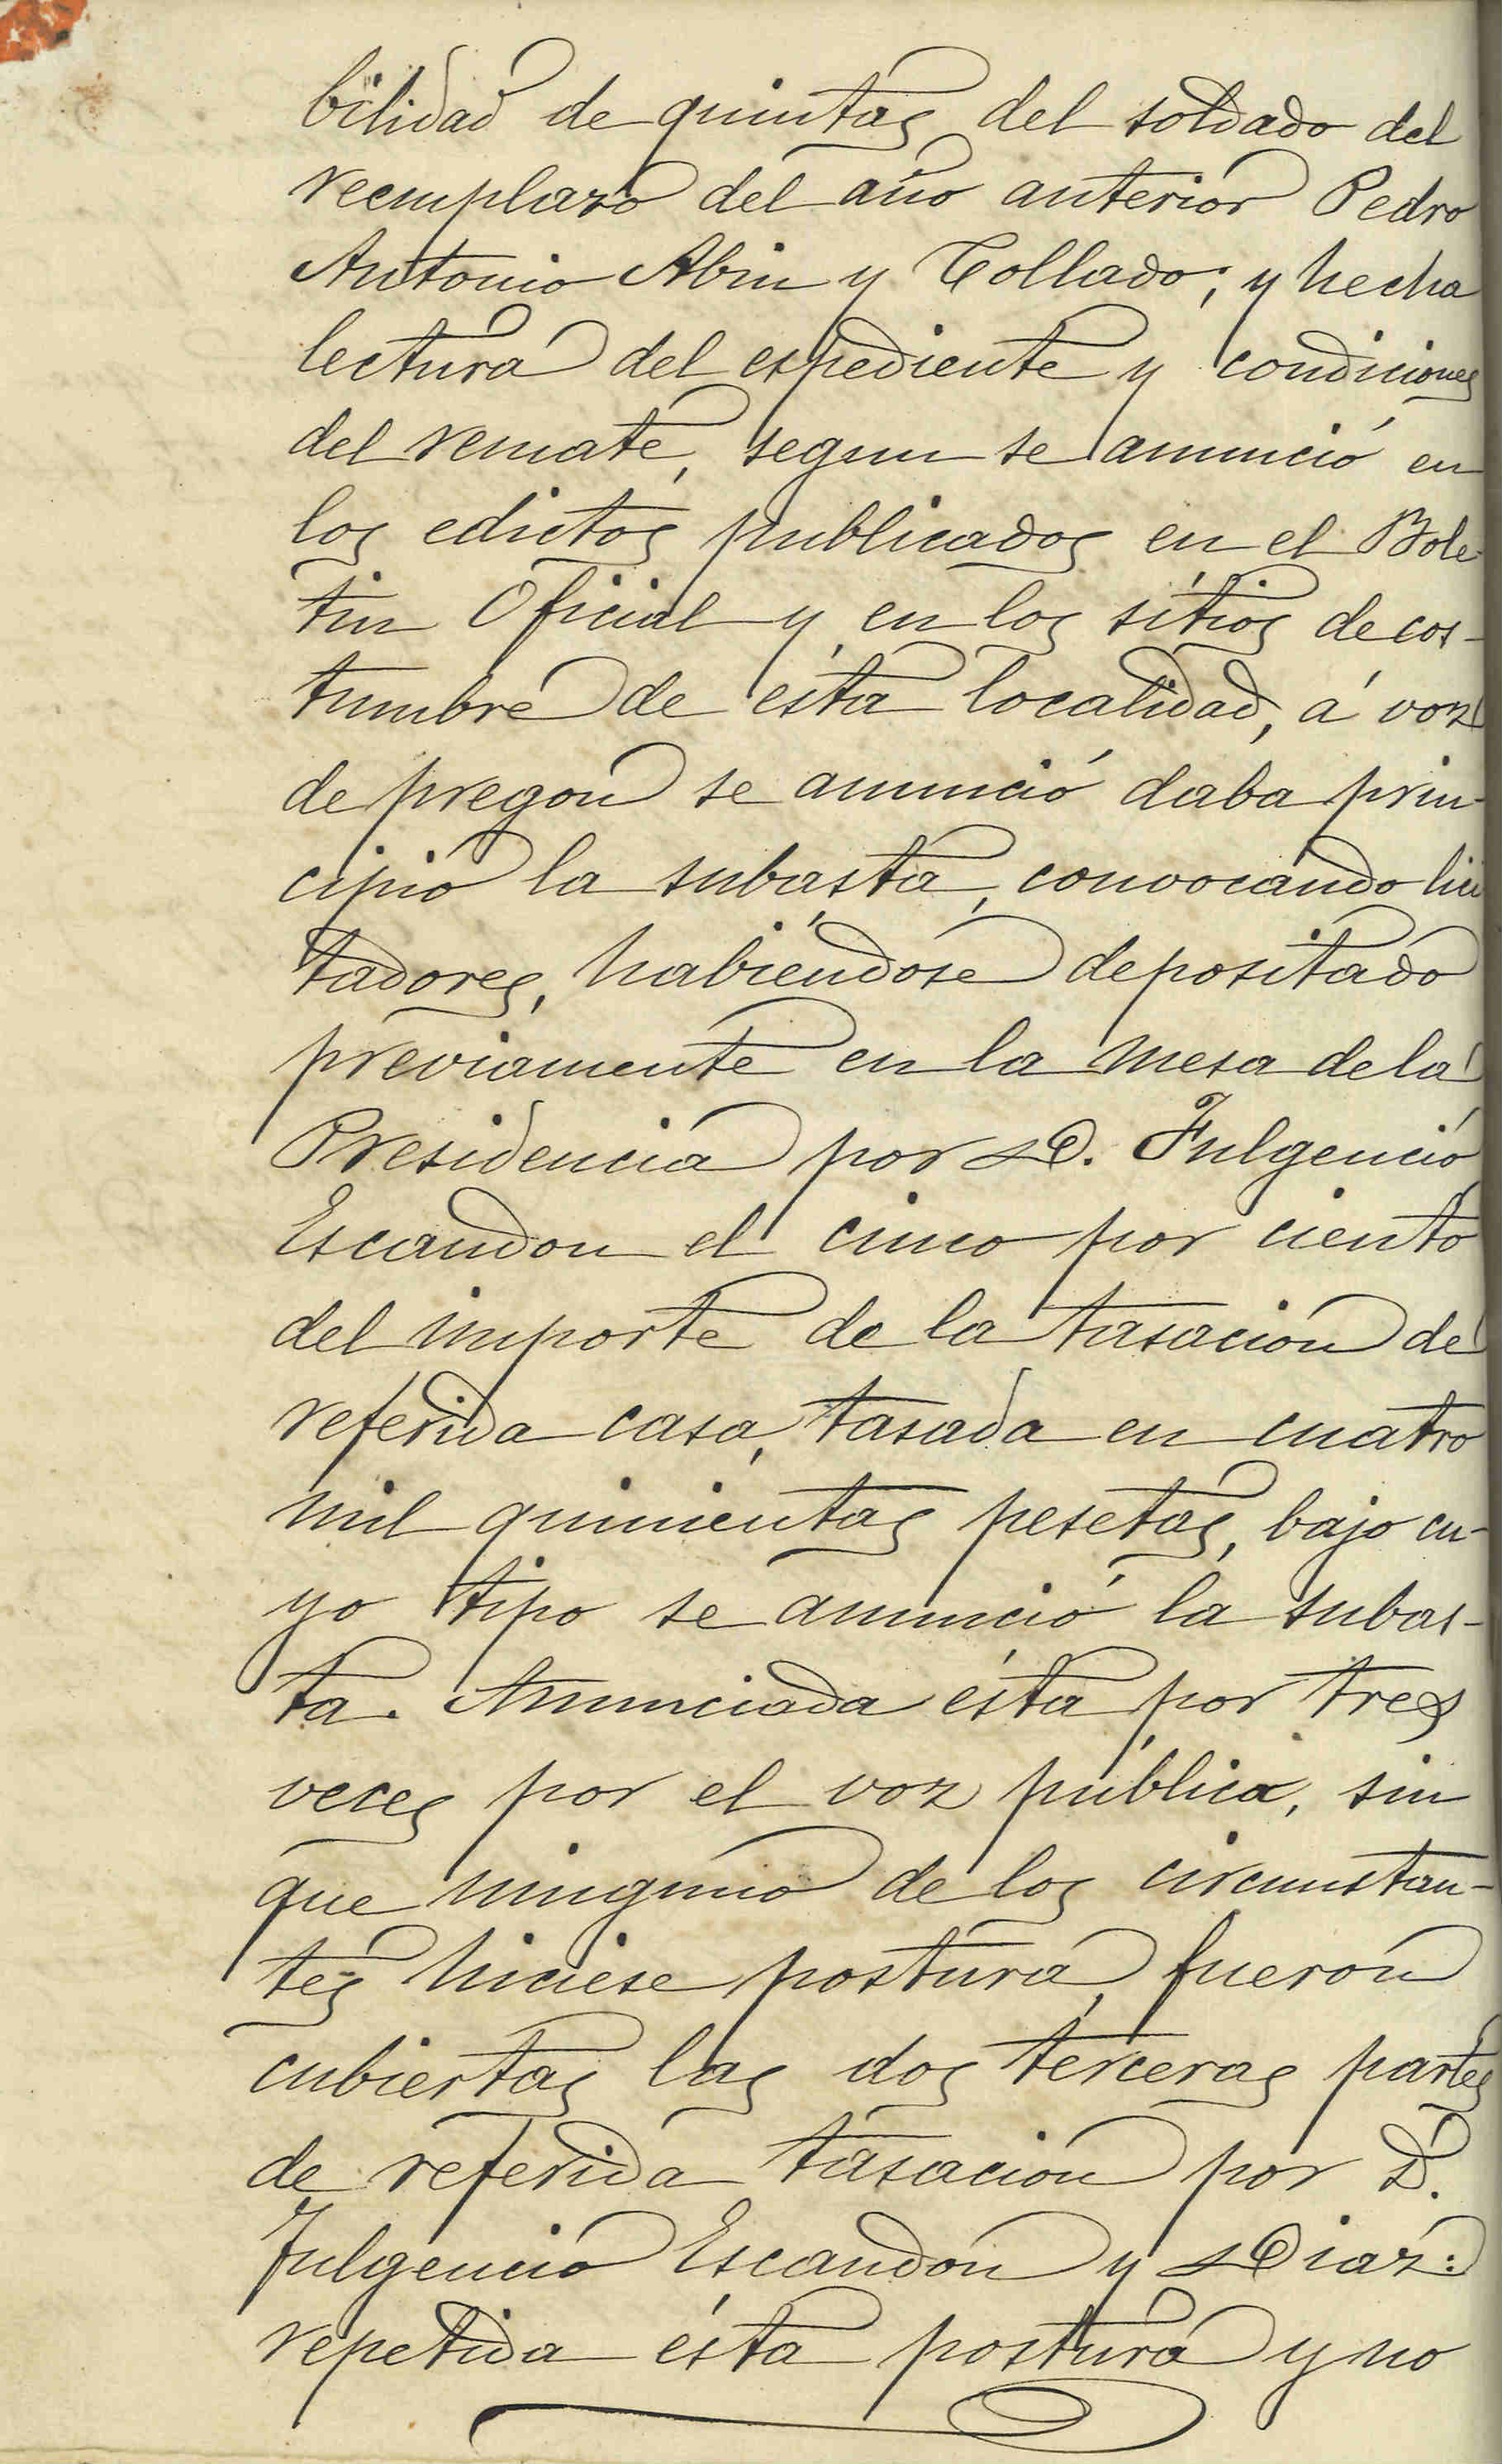 bilidad de quintas del soldado del
reemplazo del año anterior Pedro
Antonio Abin y Collado; y hecha
lectura del espediente y condiciones
del remate, segun se anunció en
los edictos publicados en el Bole-
tin Oficial y en los sitios de cos-
tumbre de esta localidad, á voz
de pregon se anunció daba prin-
cipio la subasta, convocando lici
tadores, habiendose depositado
previamente en la mesa de la
Presidencia por D. Fulgencio
Escandon el cinco por ciento
del importe de la tasacion de
referida casa, tasada en cuatro
mil quinientas pesetas, bajo cu-
yo tipo se anunció la subas-
ta. Anunciada ésta por tres
veces por el voz pública, sin
que ninguno de los circunstan-
tes hiciese postura, fueron
cubiertas las dos terceras partes
de referida tasacion por D.
Fulgencio Escandon y Diaz:
repetida ésta postura y no